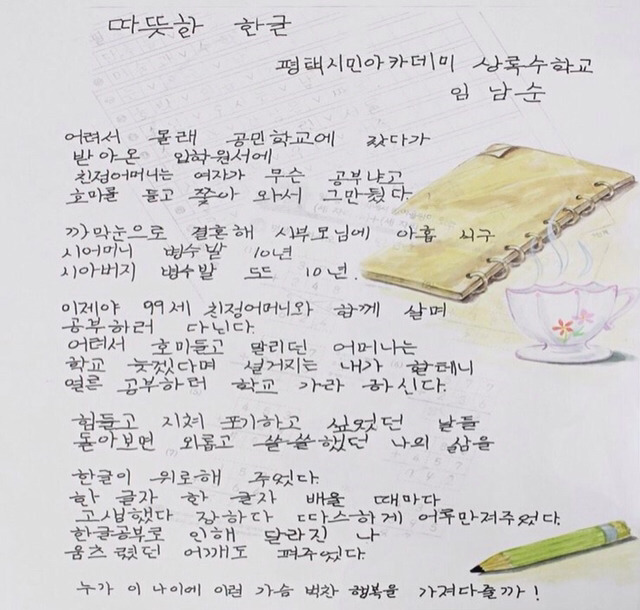 따뜻한 한글
평택시민아카데미 상록수학교
임남순
어려서 몰래 공민학교에 갔다가
받아온 입학원서에
친정어머니는 여자가 무슨 공부냐고
호미를 들고 쫓아 와서 그만뒀다.
까막눈으로 결혼해 시부모님에 아홉 식구
시어머니 병수발 10년
시아버지 병수발 또 10년.
이제야 99세 친정어머니와 함께 살며
공부하러 다닌다.
어려서 호미들고 말리던 어머니는
학교 늦겠다며 설거지는 내가 할테니
얼른 공부하러 학교 가라 하신다.
힘들고 지쳐 포기하고 싶었던 날들
돌아보면 외롭고 쓸쓸했던 나의 삶을
한글이 위로해 주었다.
한 글자 한 글자 배울 때마다
고생했다 장하다 따스하게 어루만져주었다.
한글공부로 인해 달라진 나
움츠렸던 어깨도 펴주었다.
누가 이 나이에 이런 가슴 벅찬 행복을 가져다줄까!